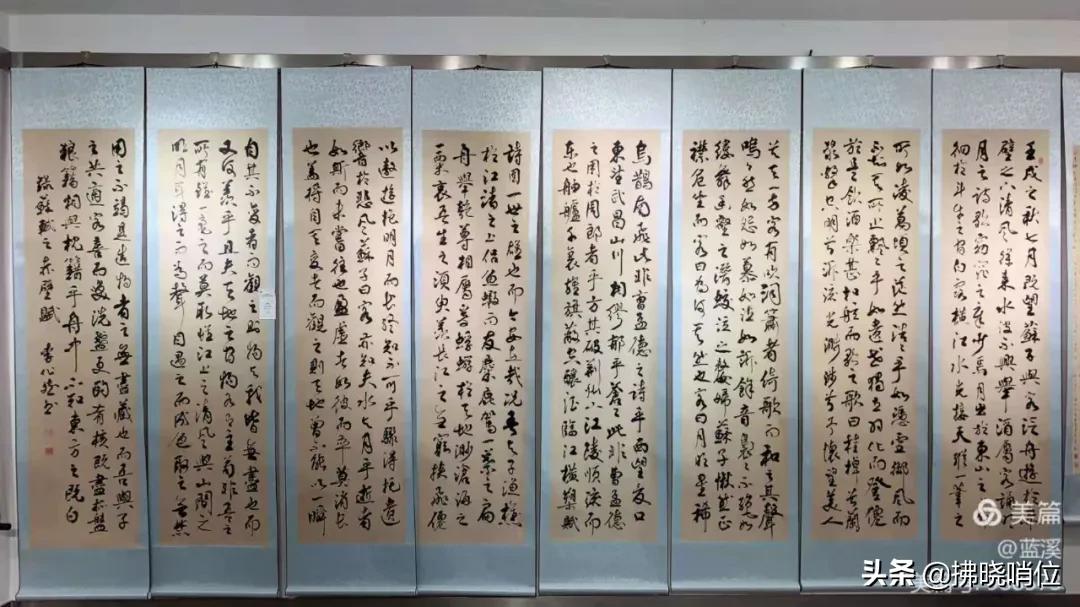 壬戌之秋七月既望蘇子與客泛舟遊於
壁之下清風徐來水波不興舉酒屬客誦明
月之詩歌窈窕之章少焉月出於東山之
徊於斗牛之間白露橫江水光接天縱一葦之
所如凌萬頃之茫然浩浩乎如憑虛御風而
不知其所止飄飄乎如遺世獨立羽化而登僊
於是飲酒樂甚扣舷而歌之歌曰桂棹兮蘭
槳擊空明兮泝流光渺渺兮予懷望美人
兮天一方客有吹洞簫者倚歌而和之其聲
嗚嗚然如怨如慕如泣如訴餘音裊裊不絕如
縷舞幽壑之潛蛟泣之嫠婦蘇子愀然正
襟危坐而客曰為何其然也客曰月明星稀
烏鵲南飛此非曹孟德之詩乎西望夏口
東望武昌山川相繆鬱乎蒼蒼此非曹孟德
之困於周郎者乎方其破荊州下江陵順流而
東也舳艫千里旌旗蔽空釃酒臨江橫槊賦
詩固一世之雄也而今安在哉況吾與子漁樵
於江渚之上侶魚蝦而友麋鹿駕一葉之扁
舟舉匏尊相屬寄蜉蝣於天地渺滄海之
一粟哀吾生之須臾羨長江之無窮挾飛僊
以遨遊抱明月而長終知不可乎驟得托遺
響於悲風蘇子曰客亦知夫水與月乎逝者
如斯而未嘗往也盈虛者如彼而卒莫消長
也蓋將自其變者而觀之則天地曾不能以一瞬
自其不變者而觀之則物與我皆無盡也而
又何羨乎且夫天地之間物各有主苟非吾之
所有雖一毫之而莫取惟江上之清風與山間之
明月耳得之而為聲目遇之而成色取之無禁
用之不竭是造物者之無盡藏也而吾與子
之共適客喜而笑洗盞更酌肴核既盡杯盤
狼籍相與枕籍乎舟中不知東方之既白
錄蘇軾之赤壁賦 李心書
美篇
@蓝溪
头条 @拂晓哨位